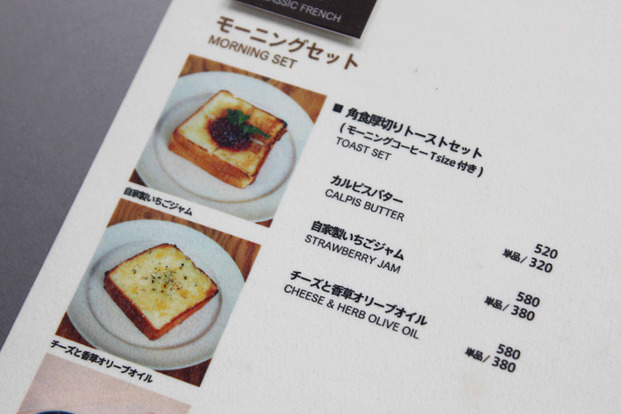 CLASSIC FRENCH
モーニングセット
MORNING SET
■ 角食厚切りトーストセット
(モーニングコーヒーTsize付き)
TOAST SET
カルピスバター
CALPIS BUTTER
520
単品/ 320
自家製いちごジャム
STRAWBERRY JAM
580
単品/ 380
チーズと香草オリーブオイル
CHEESE & HERB OLIVE OIL
580
単品/ 380
自家製いちごジャム
チーズと香草オリーブオイル